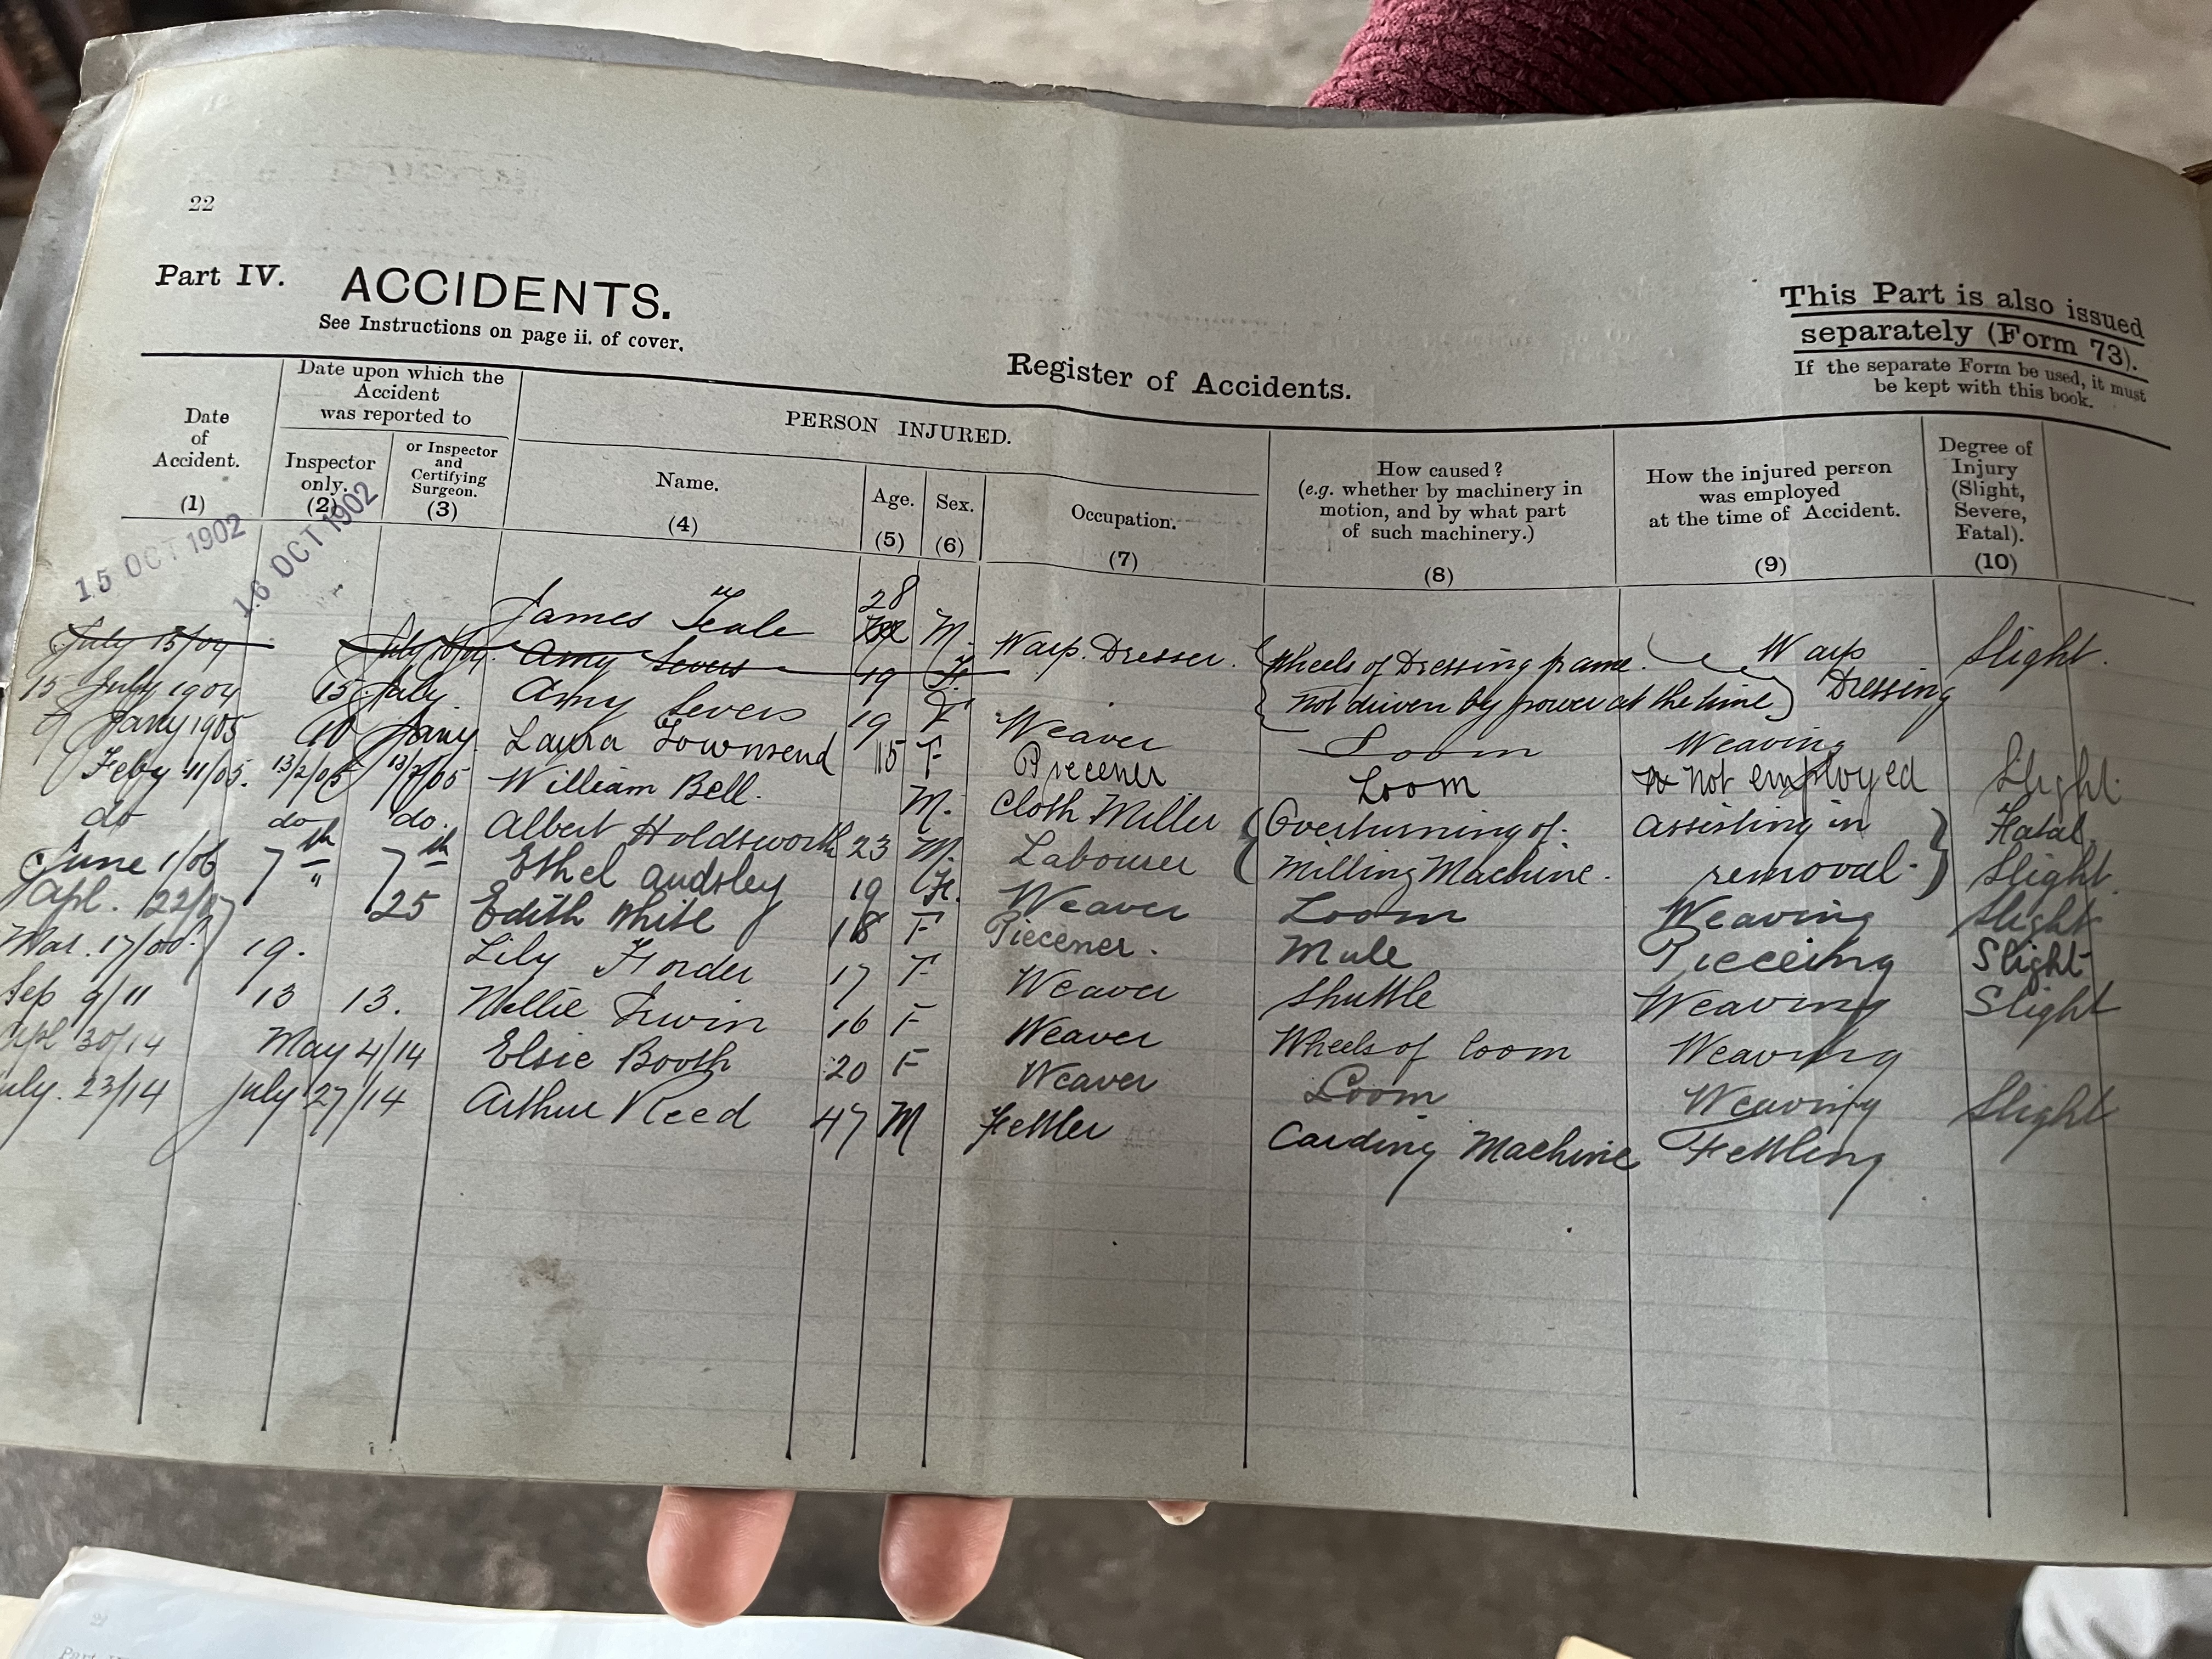 22
Part IV. ACCIDENTS.
See Instructions on page ii. of cover.
This Part is also issued
separately (Form 73).
If the separate Form be used, it must
be kept with this book.
Register of Accidents.
Date of Accident. (1)
Date upon which the Accident was reported to
Inspector only. (2)
or Inspector and Certifying Surgeon. (3)
PERSON INJURED.
Name. (4)
Age. (5)
Sex. (6)
Occupation. (7)
How caused? (e.g. whether by machinery in motion, and by what part of such machinery.) (8)
How the injured person was employed at the time of Accident. (9)
Degree of Injury (Slight, Severe, Fatal). (10)
15 OCT 1902 16 OCT 1902 James Teale 28 M. Warp Dresser. Wheels of Dressing frame. Warp Slight.
Not driven by power at the time Dressing
July 15/04 July Amy Severs 19 F.
15 July 1904 15 July Amy Severs 19 F Weaver Loom Weaving
7 Jany 1905 10 Jany Laura Townsend 15 F Piecener Loom Not employed Slight.
Feby 11/05. 13/2/05 13/2/05 William Bell. M. Cloth Miller Overturning of Assisting in Fatal
do do do. Albert Holdsworth 23 M. Labourer Milling Machine. removal. Slight.
June 1/06 7th 7th Ethel Audsley 19 F. Weaver Loom Weaving Slight
Apl. 22/ " 25 Edith White 18 F Piecener. Mule Pieceing Slight
Mar. 17/ 19. Lily Forder 17 F Weaver Shuttle Weaving Slight
Sep 9/11 13 13. Nellie Irwin 16 F Weaver Wheels of loom Weaving
Apl 30/14 May 4/14 Elsie Booth 20 F Weaver Loom Weaving Slight
uly. 23/14 July 27/14 Arthur Reed 47 M Fettler Carding Machine Fettling